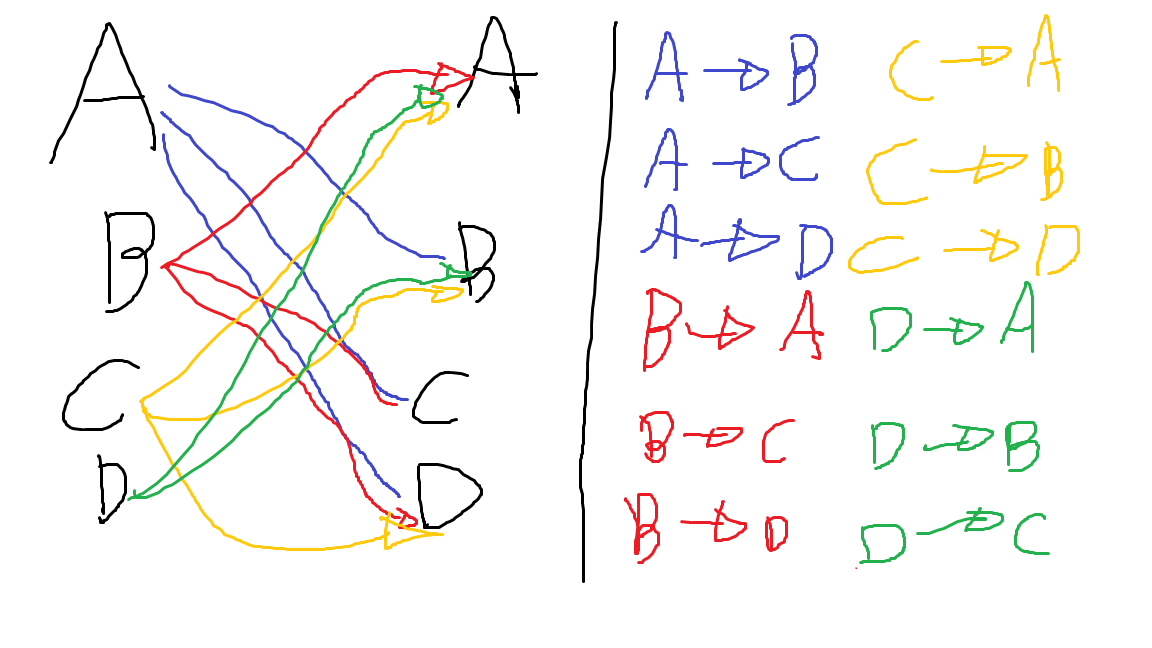 A A
B B
C C
D D
A → B
A → C
A → D
B → A
B → C
B → D
C → A
C → B
C → D
D → A
D → B
D → C